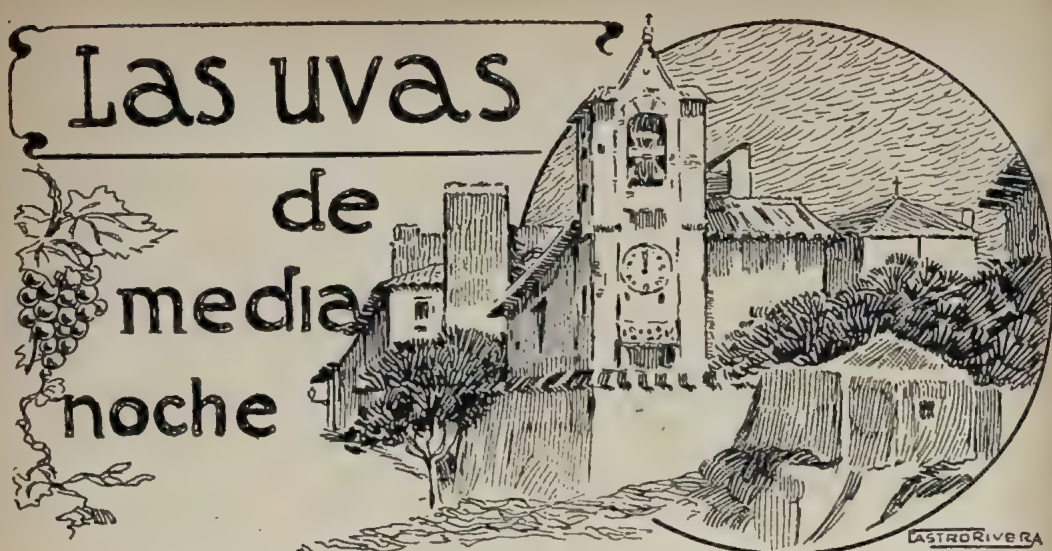 Las uvas
de
media
noche
CASTRORIVERA